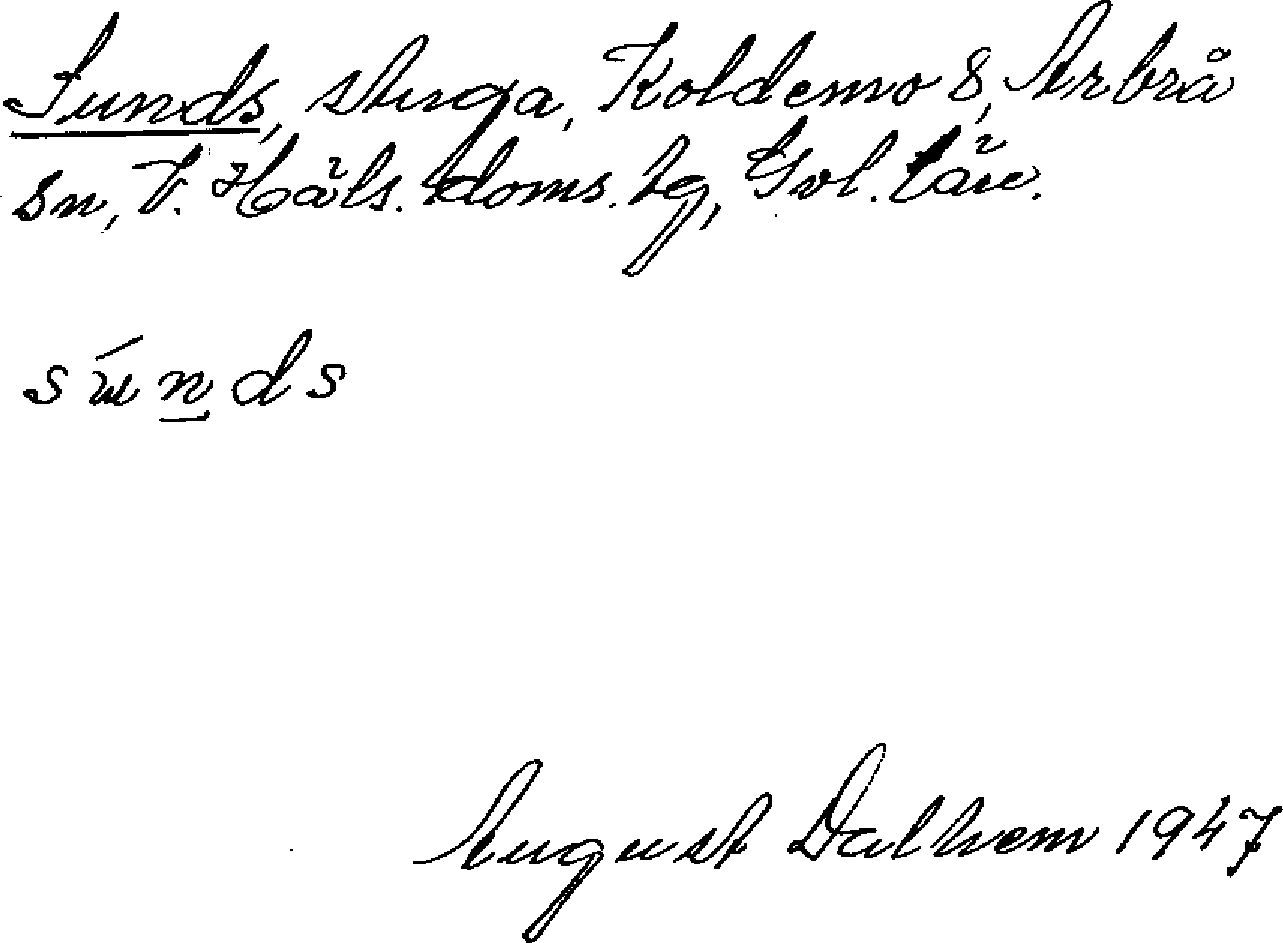 Sunds, stuga, Koldemo 8, Arbrå
sn, V. Häls. doms. tg, Gvl. län.
súnds
August Dalhem 1947